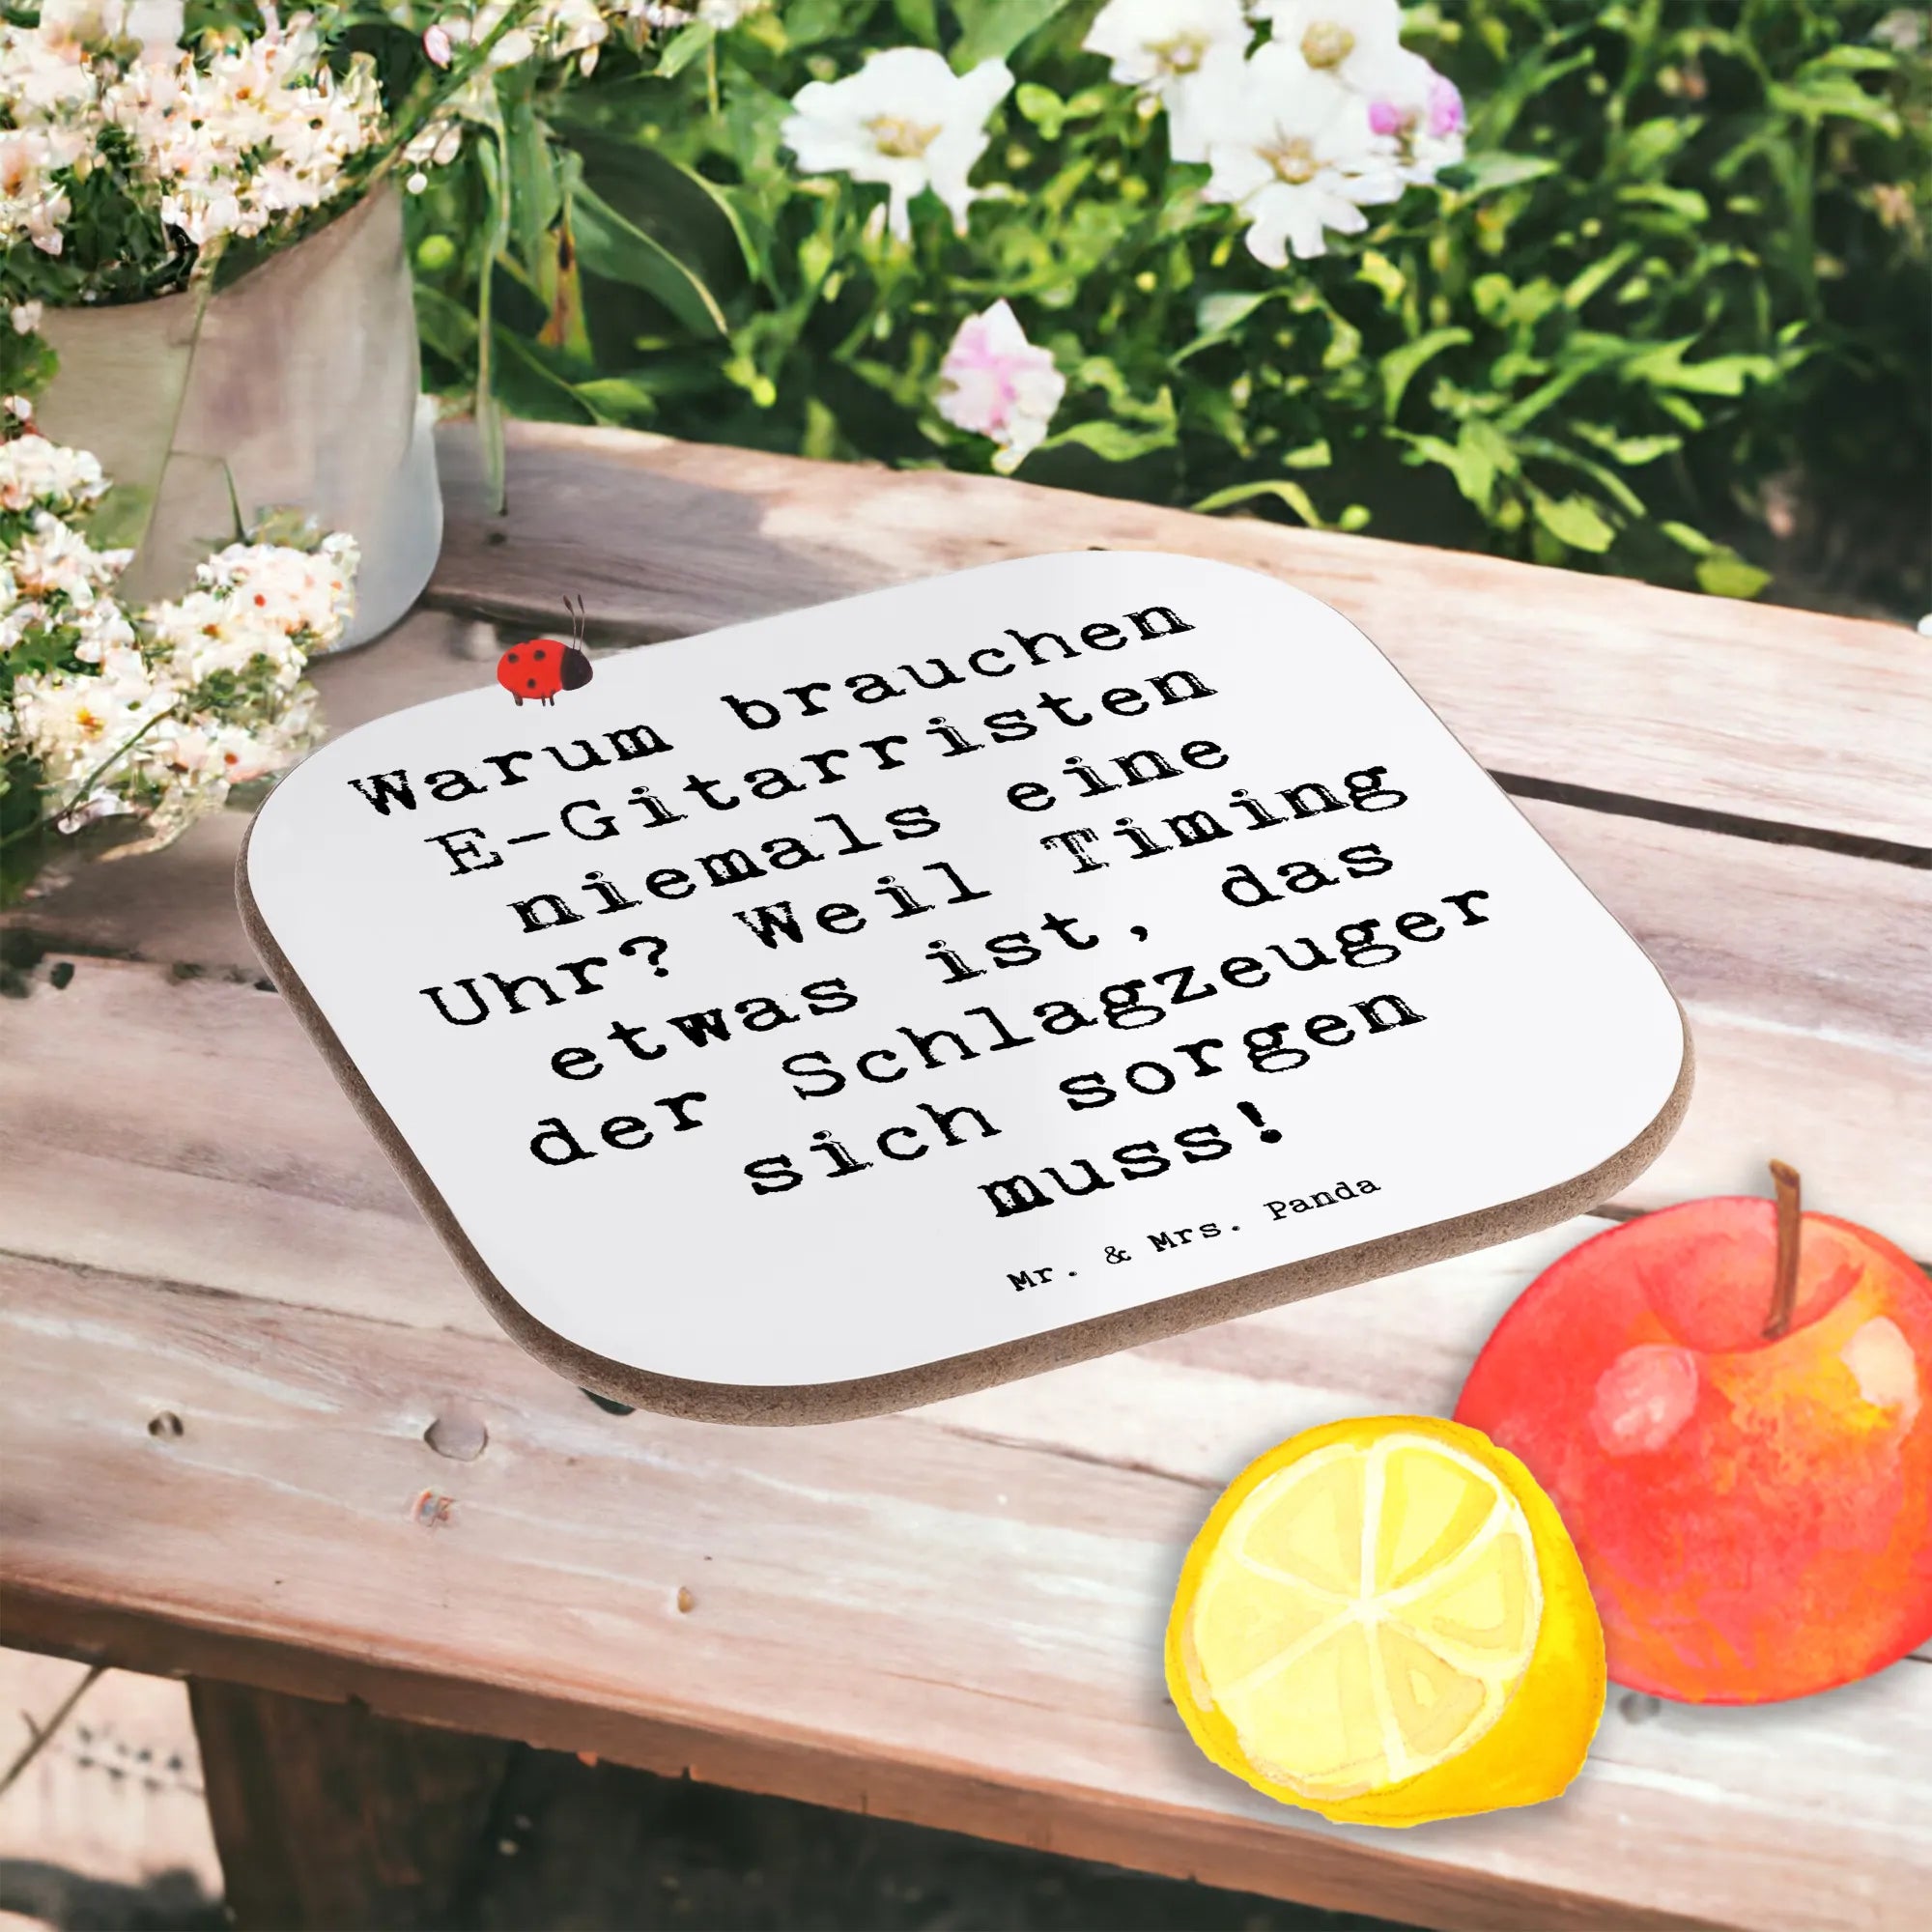 Warum brauchen
E-Gitarristen
niemals eine
Uhr? Weil Timing
etwas ist, das
der Schlagzeuger
sich sorgen
muss!
Mr. & Mrs. Panda